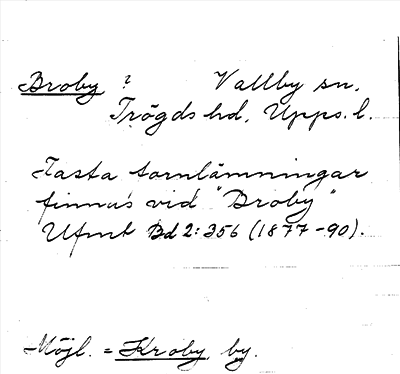 Broby ? Vallby sn.
Trögds hd, Upps. l.
Fasta fornlämningar
finnas vid "Broby"
Ufmt Bd 2:356 (1877-90).
Möjl. = Kroby, by.